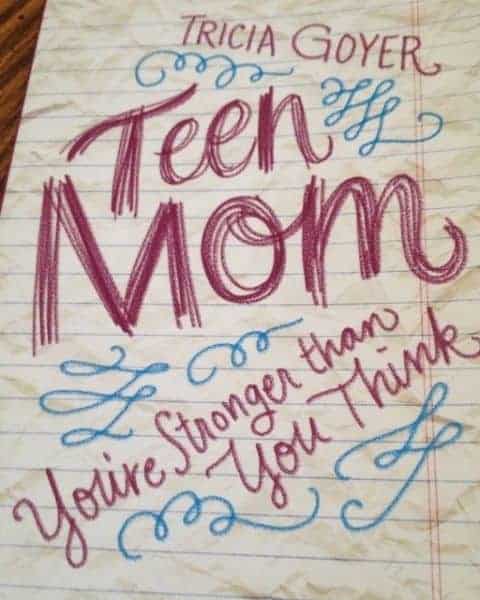 TRICIA GOYER
Teen
Mom
You're Stronger than
You Think